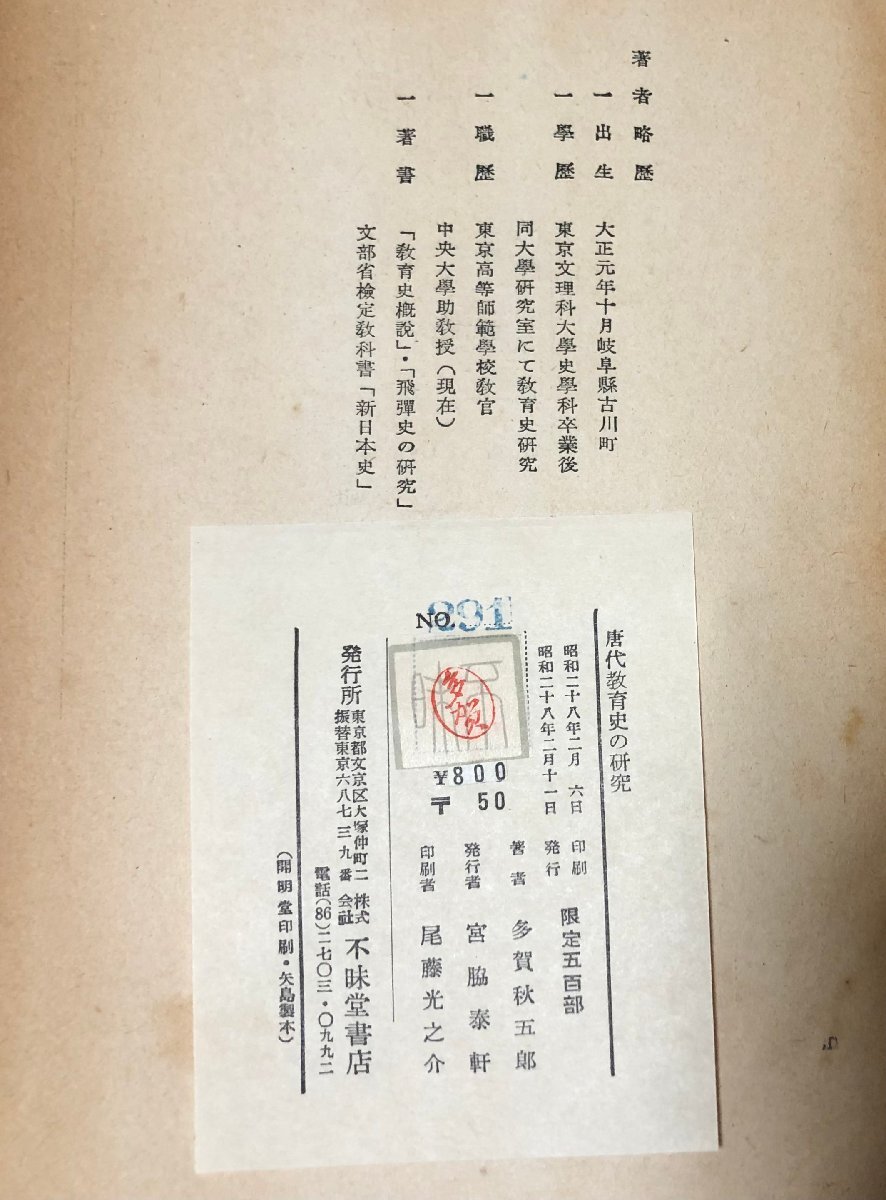 著者略歴
一出生 大正元年十月岐阜縣古川町
一學歷 東京文理科大學史學科卒業後
同大學研究室にて教育史研究
一職歷 東京高等師範學校教官
中央大學助教授(現在)
一著書 「教育史概說」・「飛彈史の研究」
文部省檢定教科書「新日本史」
唐代教育史の研究
昭和二十八年二月 六日 印刷
昭和二十八年二月十一日 発行
限定五百部
NO. 291
多賀
¥800
〒 50
著者 多賀秋五郎
発行者 宮脇泰軒
印刷者 尾藤光之介
発行所 東京都文京区大塚仲町二
振替東京六八七三九番
株式会社 不昧堂書店
電話(86)二七〇三・〇九九二
(開明堂印刷・矢島製本)